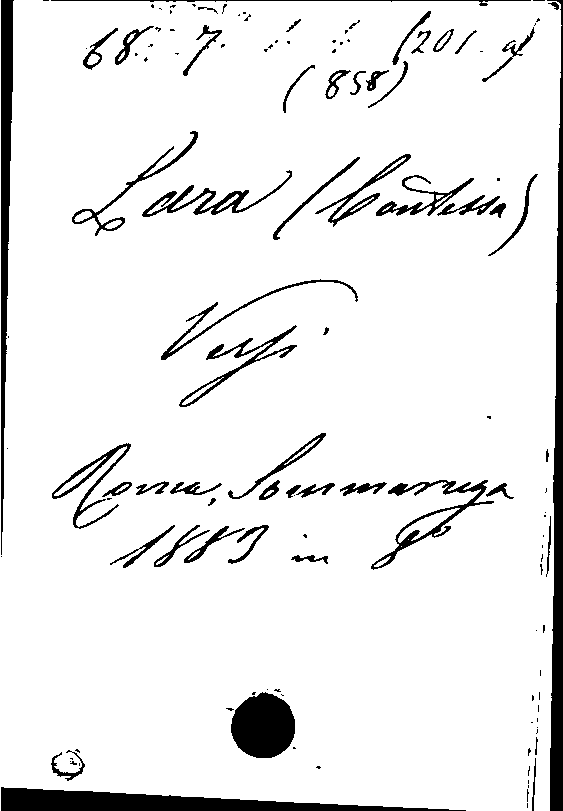 68. 7. (201. a)
(858)
Lara (Contessa)
Versi
Roma, Sommaruga
1883 in 8º